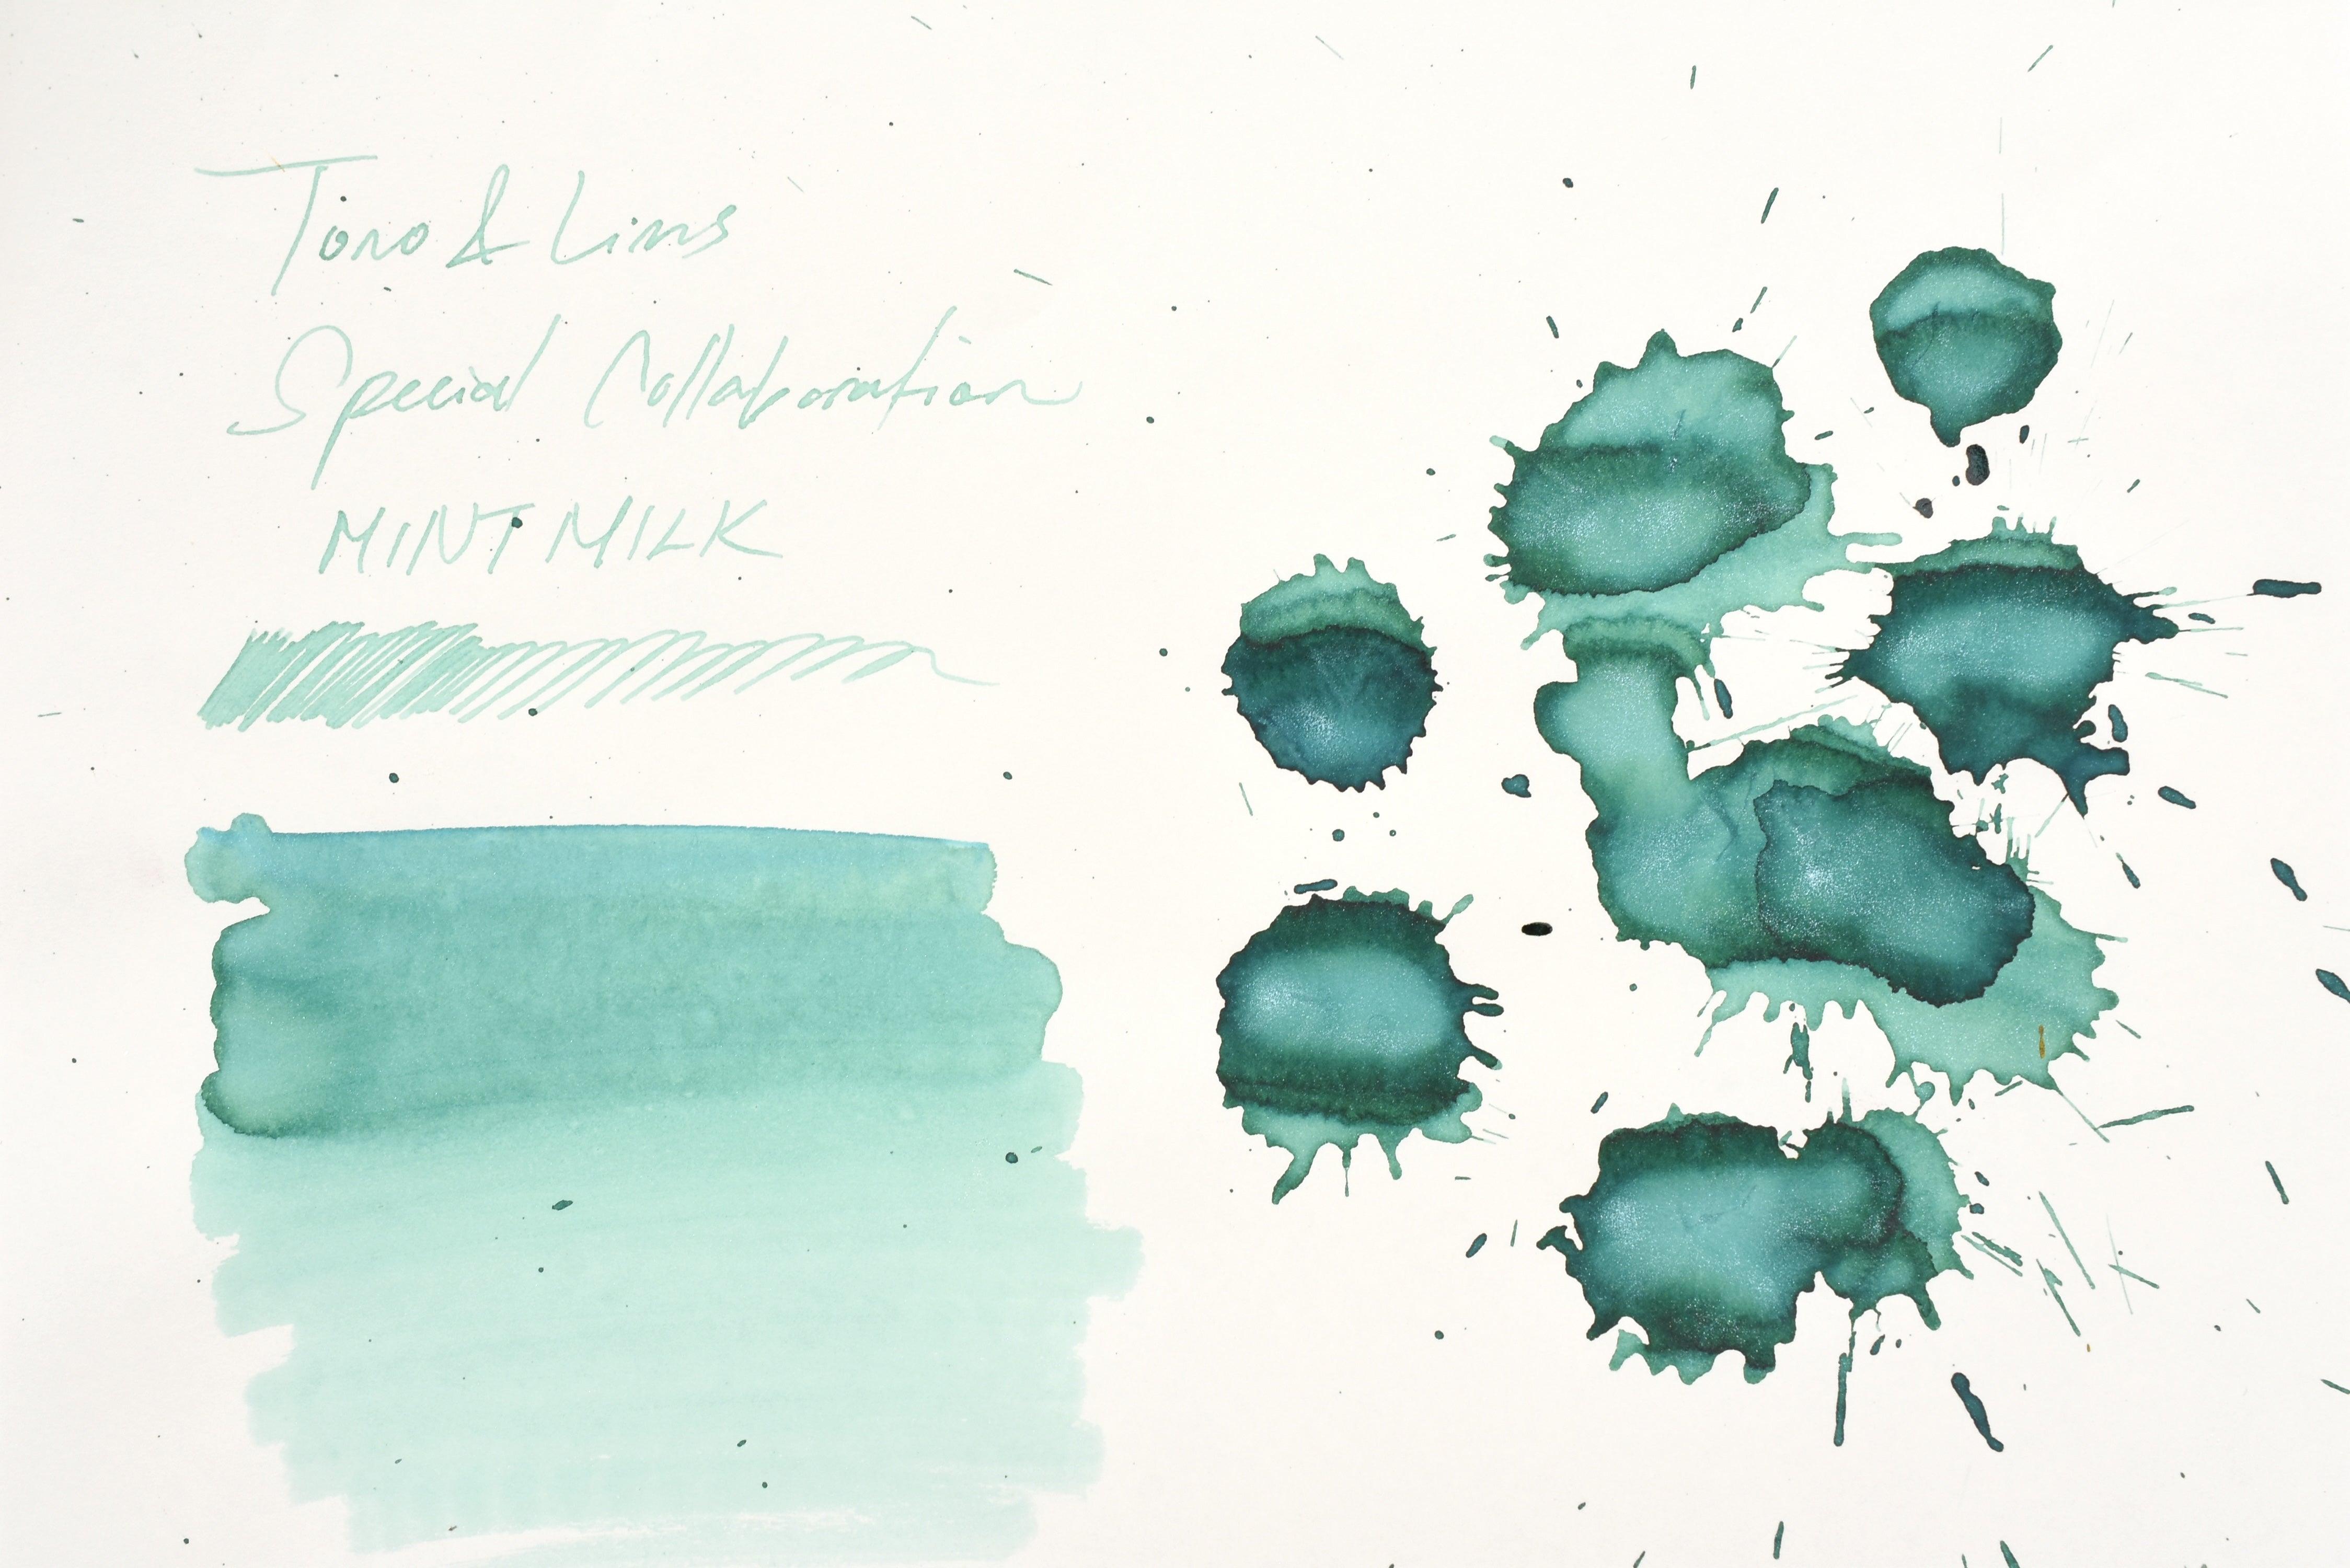 Tono & Lims
Special Collaboration
MINT MILK